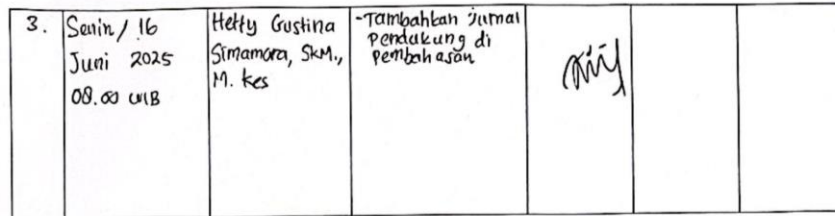 3.
Senin / 16
Juni 2025
08.00 WIB
Hetty Gustina
Simamora, SKM.,
M. kes
-Tambahkan Jurnal
Pendukung di
Pembahasan